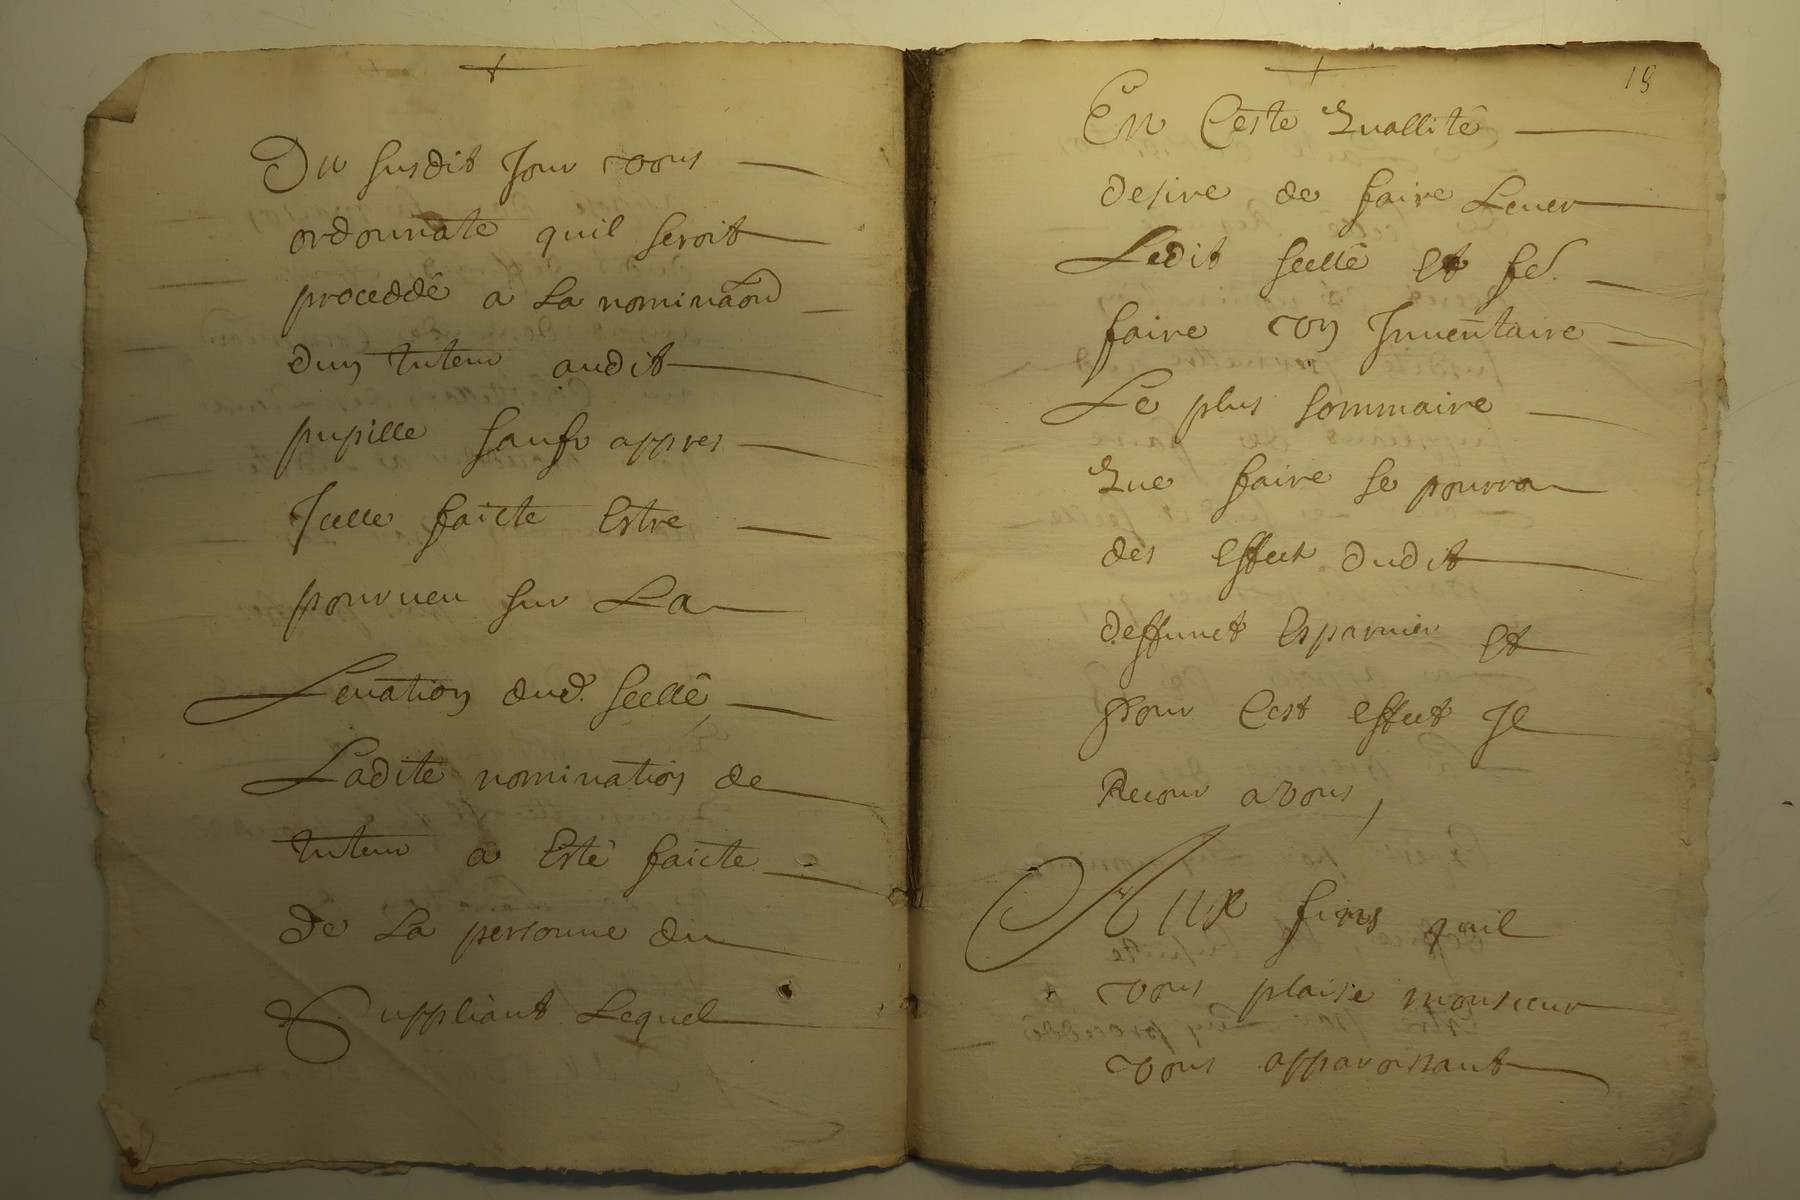 Du susdit Jour vous
ordonnate quil seroit
proceddé a La nominaõn
dun tuteur audit
pupille sauf appres
Jcelle faicte Estre
pourueu sur La
Leuation dud. scellé,
Ladite nomination de
tuteur a Esté faicte
De La personne du
Suppliant Lequel
18
En Ceste Quallité
desire de faire Leuer
Ledit scellé Et
faire un Jnuentaire
Le plus sommaire
Que faire se pourra
des effect dudit
deffunct Esparuier Et
pour Cest effect Jl
Recour a vous,
Aux fins quil
vous plaise monsieur
vous apparoissant